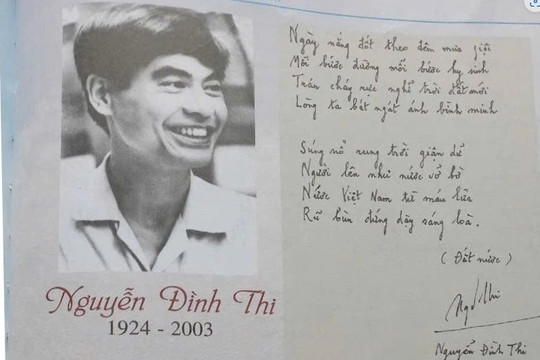 Nguyễn Đình Thi
1924 - 2003
Ngày nắng đốt theo đêm mưa giội
Mỗi bước đường mỗi bước hy sinh
Trán cháy rực nghĩ trời đất mới
Lòng ta bát ngát ánh bình minh
Súng nổ rung trời giận dữ
Người lên như nước vỡ bờ
Nước Việt Nam từ máu lửa
Rũ bùn đứng dậy sáng loà.
(Đất nước)
Nguyễn Đình Thi